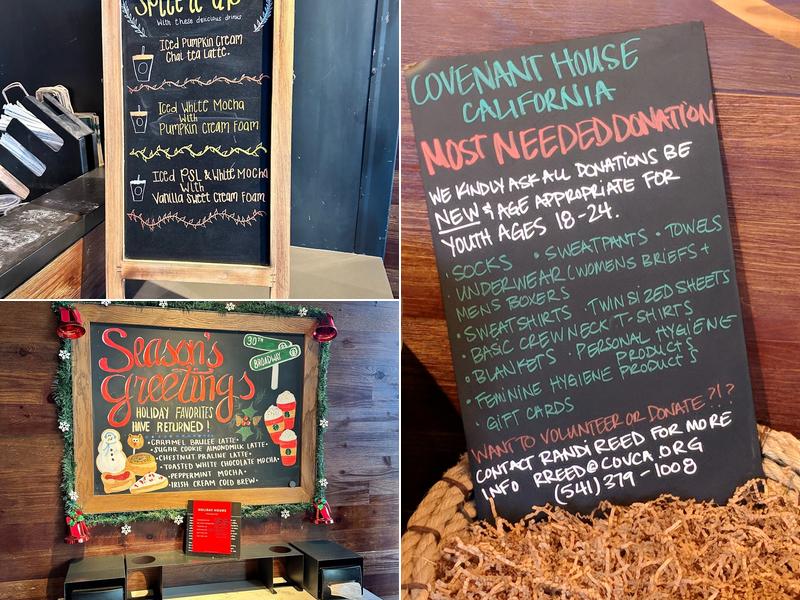 Spice it up
With these delicious drinks
Iced Pumpkin Cream
Chai tea Latte.
Iced White Mocha
With
Pumpkin cream Foam
Iced PSL & White Mocha
With
Vanilla Sweet Cream Foam
COVENANT HOUSE
CALIFORNIA
MOST NEEDED DONATION
WE KINDLY ASK ALL DONATIONS BE
NEW & AGE APPROPRIATE FOR
YOUTH AGES 18-24.
· SOCKS · SWEATPANTS · TOWELS
· UNDERWEAR (WOMENS BRIEFS +
MENS BOXERS
· SWEATSHIRTS · TWIN SIZED SHEETS
· BASIC CREW NECK T-SHIRTS
· BLANKETS · PERSONAL HYGIENE
PRODUCTS
· FEMININE HYGIENE PRODUCTS
· GIFT CARDS
WANT TO VOLUNTEER OR DONATE ?!?
CONTACT RANDI REED FOR MORE
INFO RREED@COVCA.ORG
(541) 379-1008
Season's
greetings
30TH
BROADWAY
HOLIDAY FAVORITES
HAVE RETURNED!
• CARAMEL BRULEE LATTE •
• SUGAR COOKIE ALMONDMILK LATTE •
• CHESTNUT PRALINE LATTE •
• TOASTED WHITE CHOCOLATE MOCHA •
• PEPPERMINT MOCHA •
• IRISH CREAM COLD BREW •
HOLIDAY HOURS